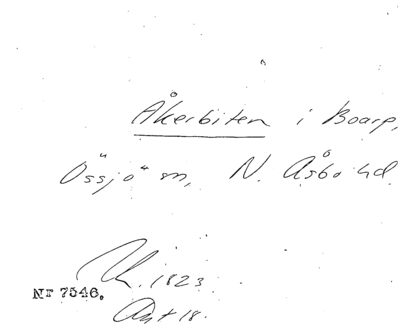 Åkerbiten i Boarp,
Össjö sn, N. Åsbo hd.
1823.
Nr 7546.
Ant 18.